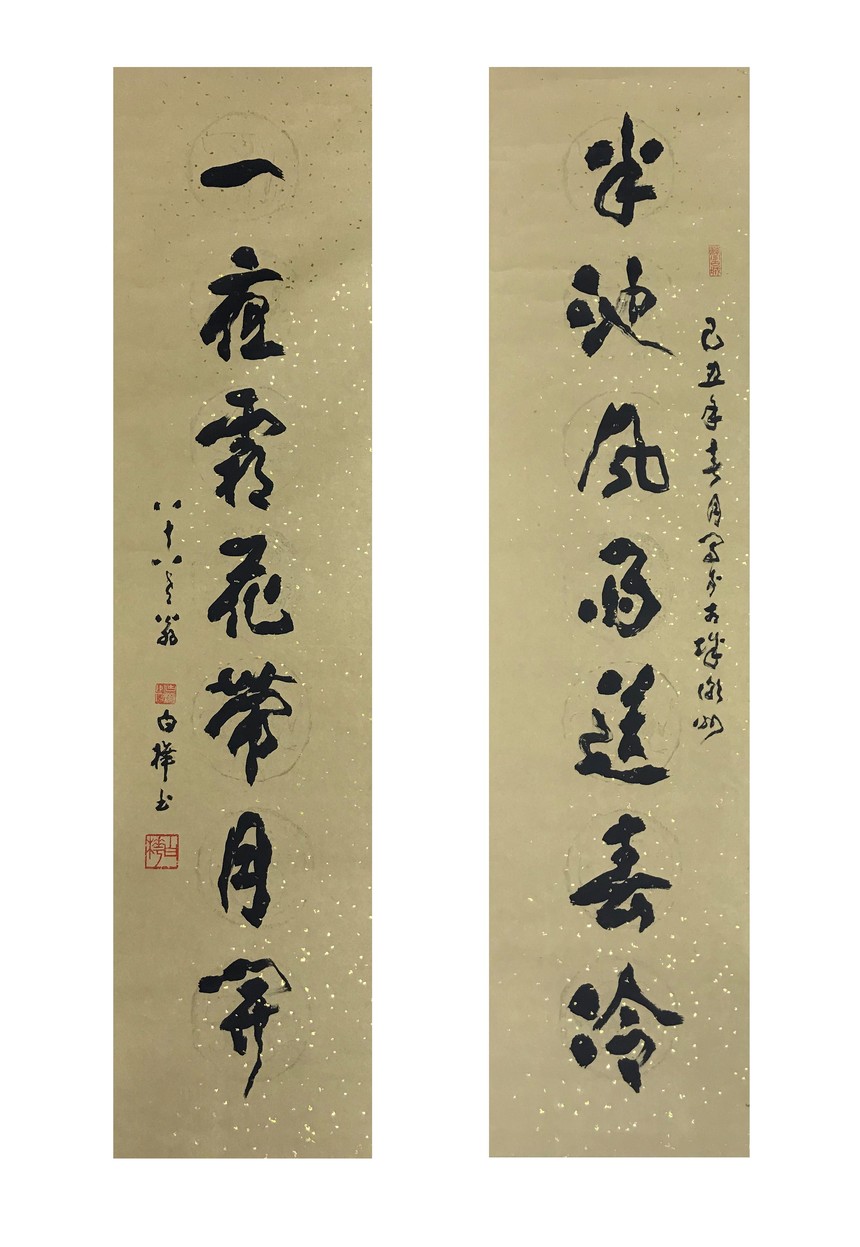 半池風雨送春冷
己丑年春月寫於古
一夜霜花帶月開
八十八老翁 白樺書
白樺